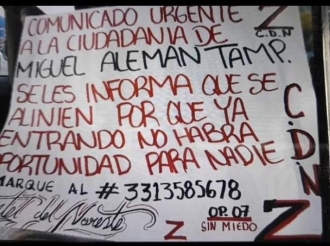 COMUNICADO URGENTE Z
A LA CIUDADANIA DE C.D.N
MIGUEL ALEMAN TAMP.
SELES INFORMA QUE SE
ALINIEN POR QUE YA
ENTRANDO NO HABRA
OPORTUNIDAD PARA NADIE
C.D.N
MARQUE AL # 3313585678
del Noreste OP. 07 Z
Z SIN MIEDO